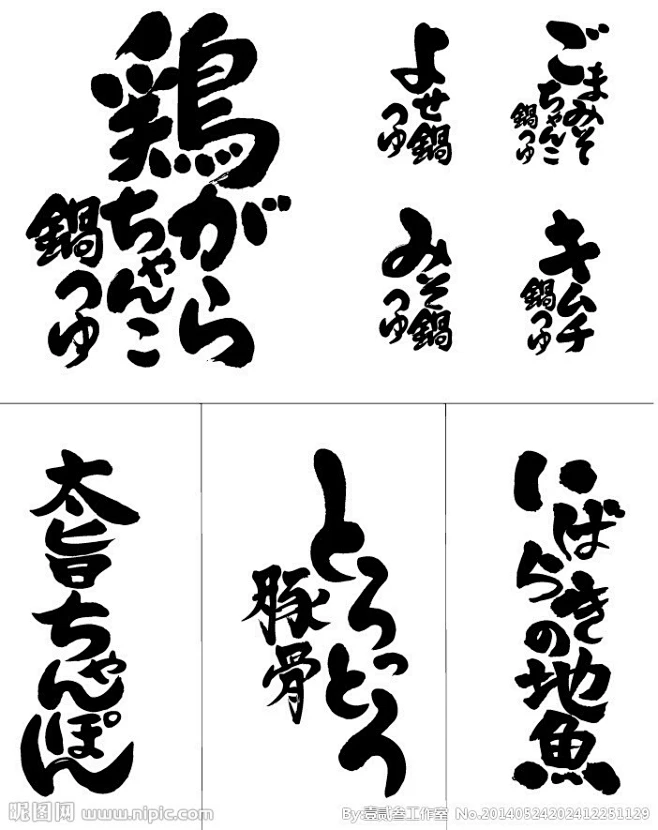 鶏がら
ちゃんこ
鍋つゆ
よせ鍋
つゆ
ごまみそ
ちゃんこ
鍋つゆ
みそ鍋
つゆ
キムチ
鍋つゆ
太旨ちゃんぽん
とろっとろ
豚骨
いばらきの地魚
昵图网 www.nipic.com
By:壹贰叁工作室 No.20140524202412251129